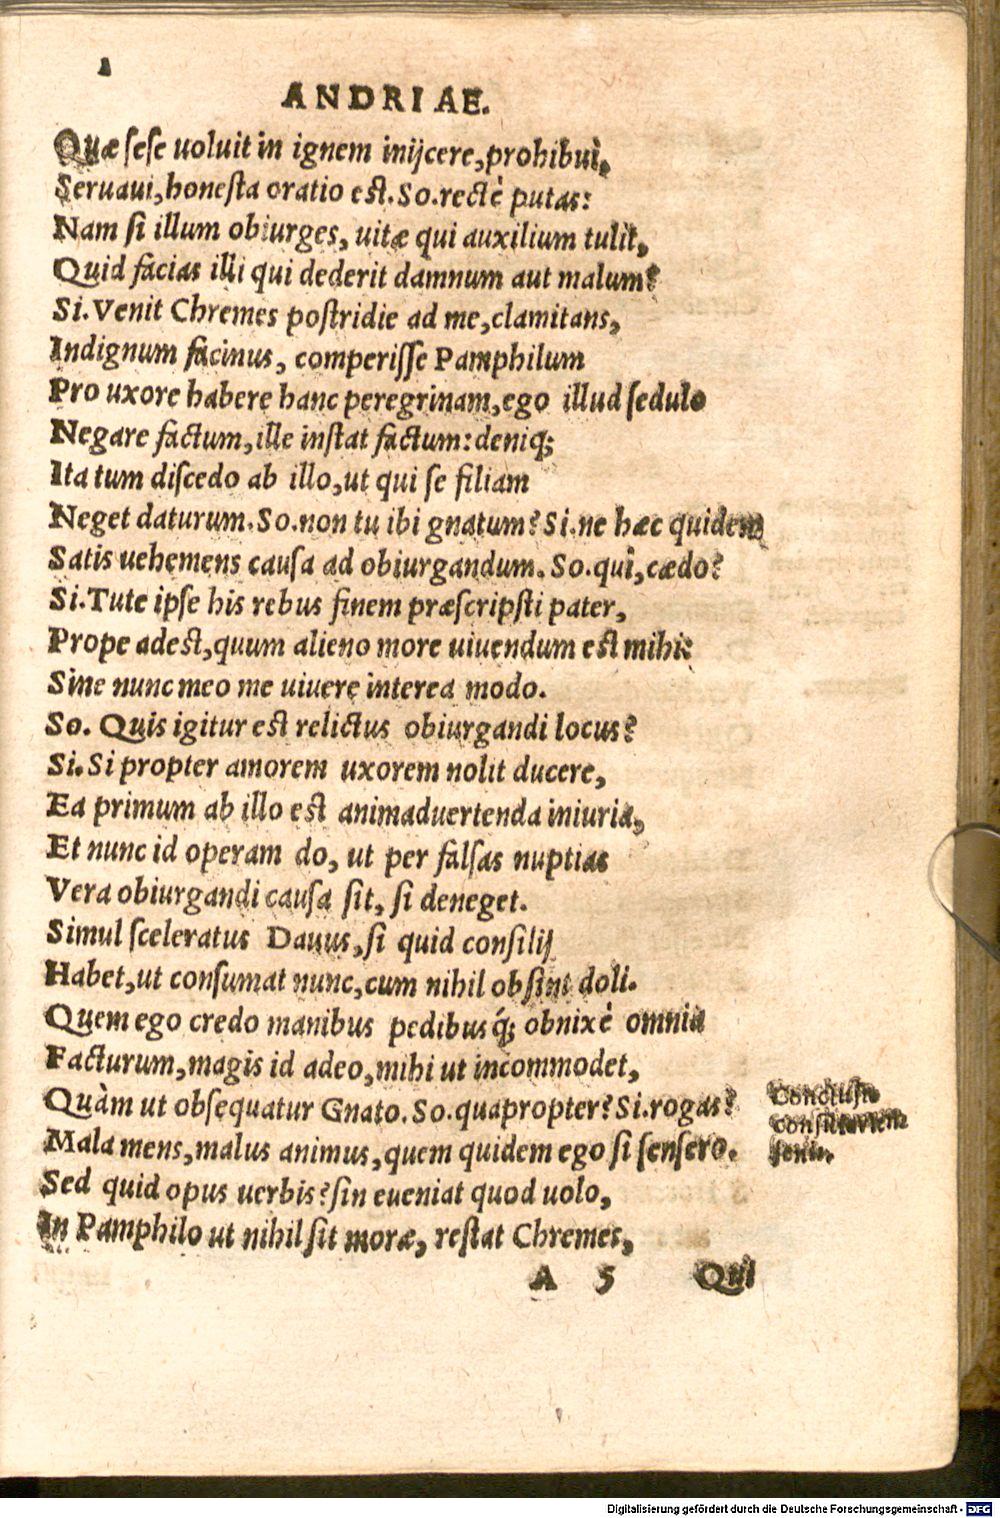 ANDRIAE.
Quæ ſeſe uoluit in ignem inijcere, prohibui,
Seruaui, honeſta oratio eſt. So. rectè putas:
Nam ſi illum obiurges, uitæ qui auxilium tulit,
Quid facias illi qui dederit damnum aut malum?
Si. Venit Chremes poſtridie ad me, clamitans,
Indignum facinus, comperiſſe Pamphilum
Pro uxore habere hanc peregrinam, ego illud ſedulo
Negare factum, ille inſtat factum: deniq;
Ita tum diſcedo ab illo, ut qui ſe filiam
Neget daturum. So. non tu ibi gnatum? Si. ne hæc quidem
Satis uehemens cauſa ad obiurgandum. So. qui, cædo?
Si. Tute ipſe his rebus finem præſcripſti pater,
Prope adeſt, quum alieno more uiuendum eſt mihi:
Sine nunc meo me uiuere interea modo.
So. Quis igitur eſt relictus obiurgandi locus?
Si. Si propter amorem uxorem nolit ducere,
Ea primum ab illo eſt animaduertenda iniuria,
Et nunc id operam do, ut per falſas nuptias
Vera obiurgandi cauſa ſit, ſi deneget.
Simul ſceleratus Dauus, ſi quid conſilij
Habet, ut conſumat nunc, cum nihil obſint doli.
Quem ego credo manibus pedibusq́; obnixè omnia
Facturum, magis id adeo, mihi ut incommodet,
Quàm ut obſequatur Gnato. So. quapropter? Si. rogas?
Mala mens, malus animus, quem quidem ego ſi ſenſero.
Sed quid opus uerbis? ſin eueniat quod uolo,
In Pamphilo ut nihil ſit moræ, reſtat Chremes,
A 5 Qui
Digitalisierung gefördert durch die Deutsche Forschungsgemeinschaft - DFG